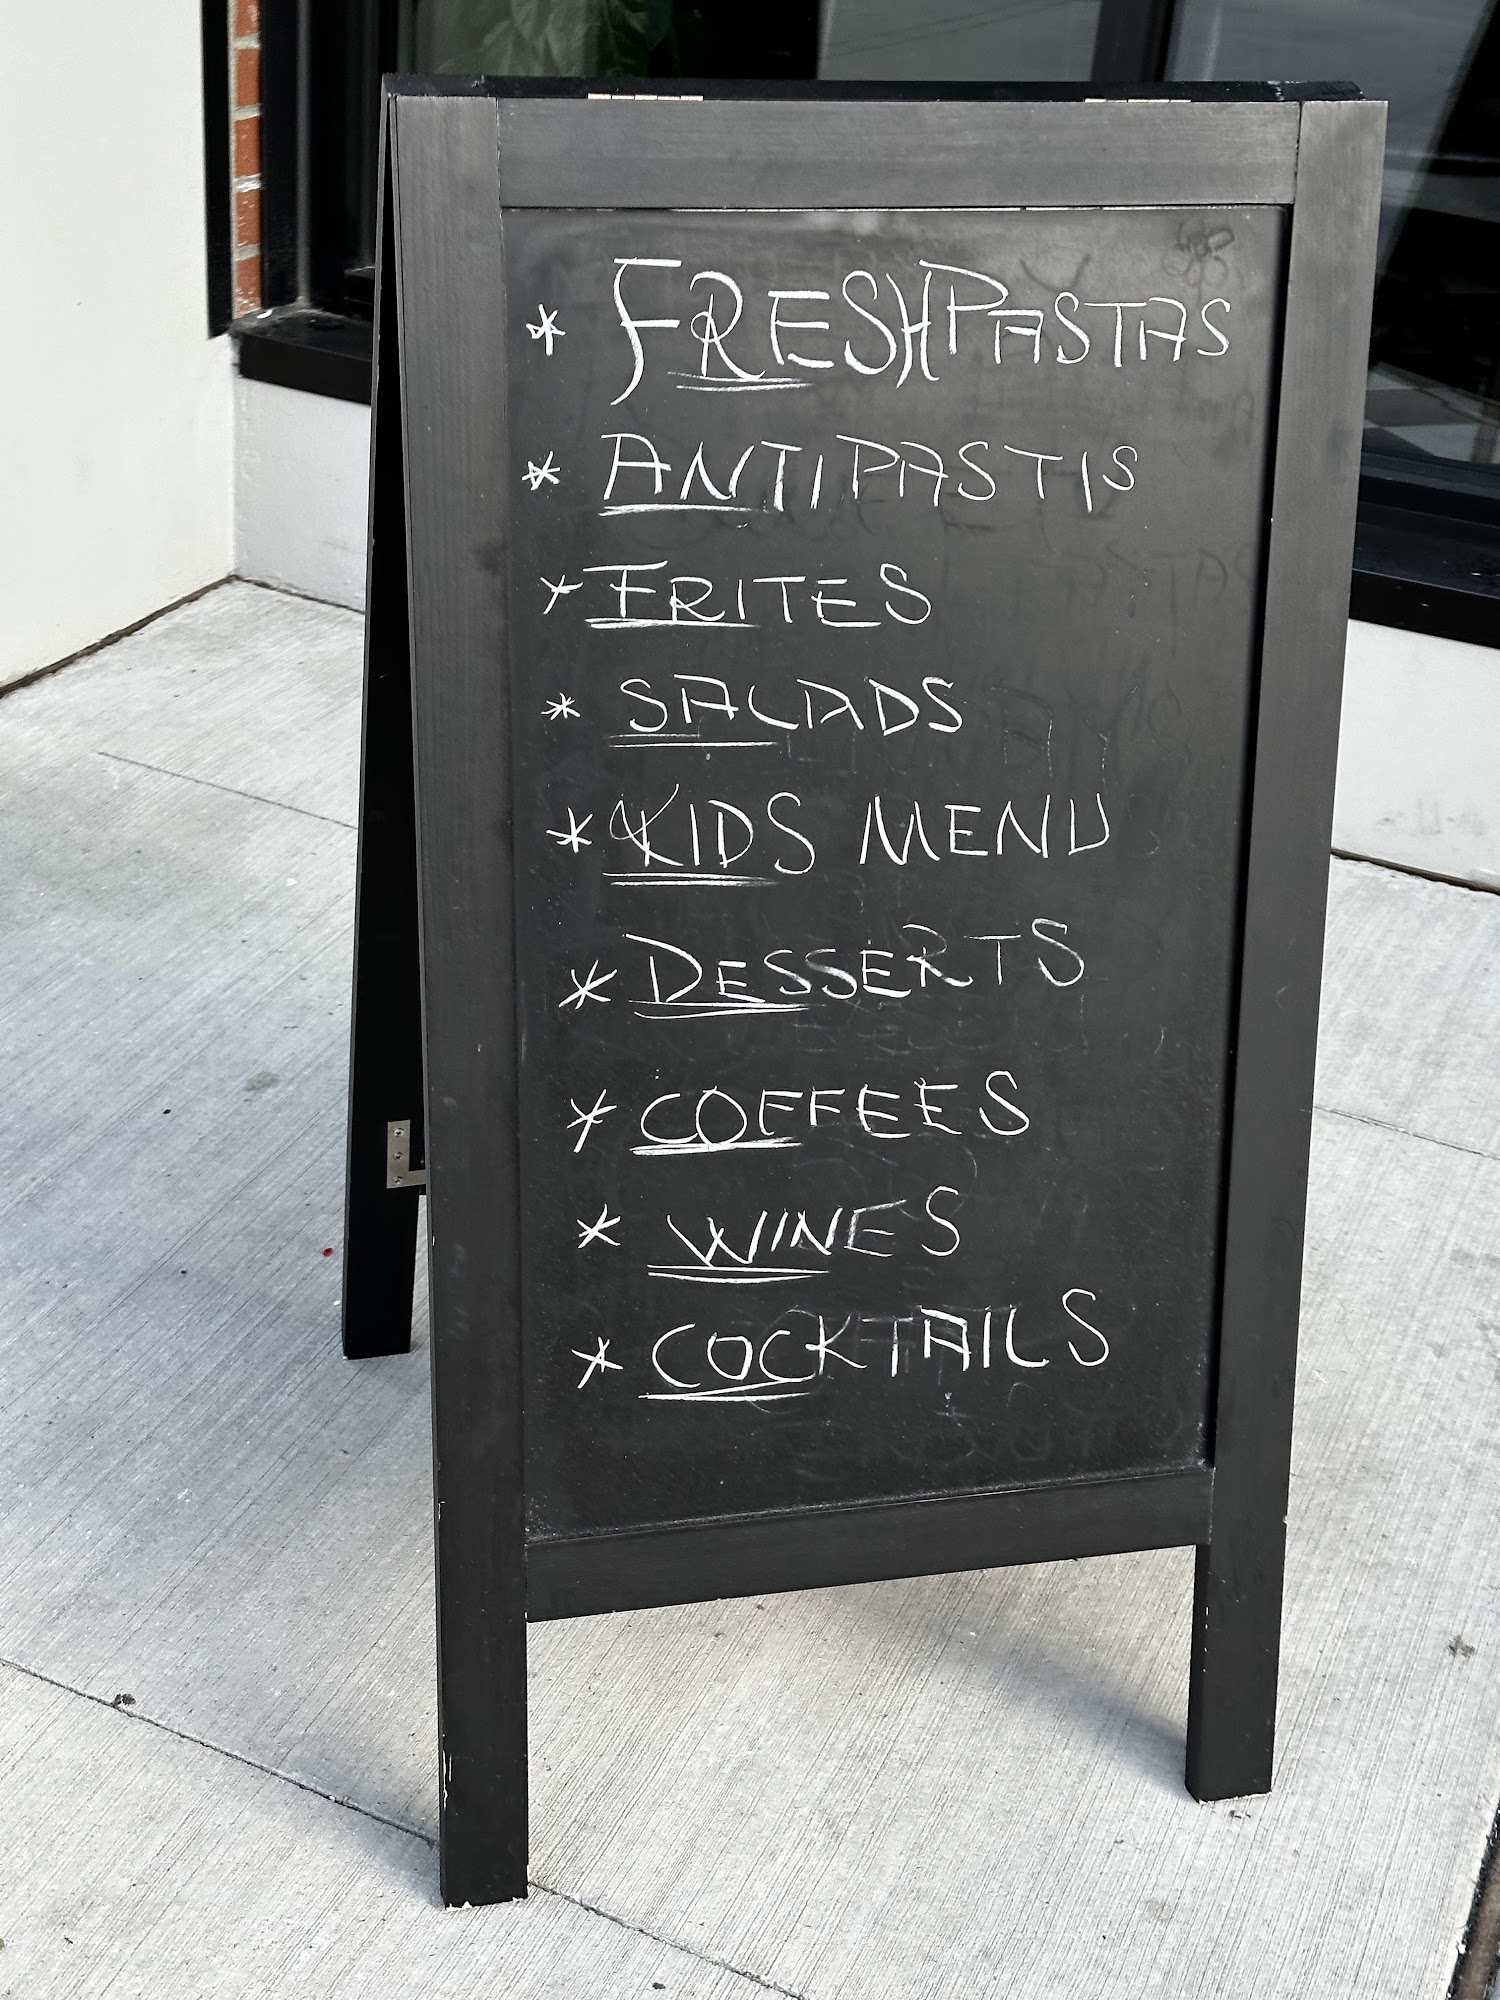 * FRESH PASTAS
* ANTIPASTIS
* FRITES
* SALADS
* KIDS MENU
* DESSERTS
* COFFEES
* WINES
* COCKTAILS